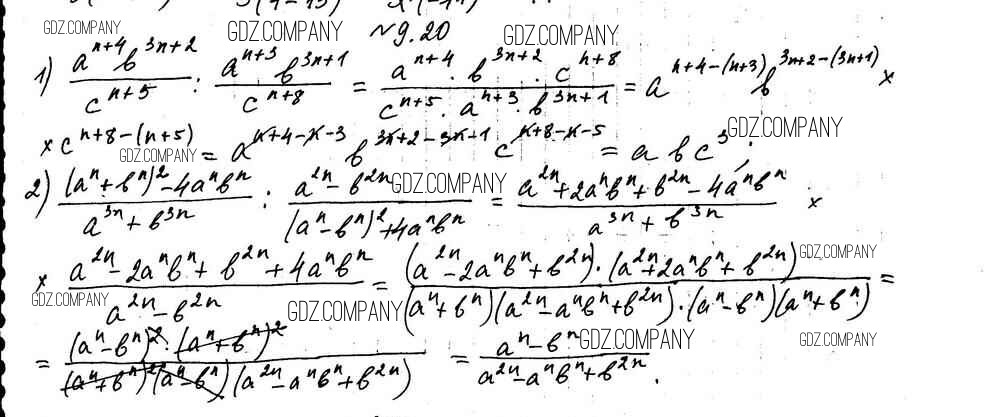 №9.20
1) a^{n+4} b^{3n+2} / c^{n+5} : a^{n+3} b^{3n+1} / c^{n+8} = a^{n+4} · b^{3n+2} · c^{n+8} / c^{n+5} · a^{n+3} · b^{3n+1} = a^{n+4-(n+3)} b^{3n+2-(3n+1)} ×
× c^{n+8-(n+5)} = a^{n+4-n-3} b^{3n+2-3n+1} c^{n+8-n-5} = a b c^3;
2) (a^n+b^n)^2-4a^nb^n / a^{3n}+b^{3n} : a^{2n}-b^{2n} / (a^n-b^n)^2+4a^nb^n = a^{2n}+2a^nb^n+b^{2n}-4a^nb^n / a^{3n}+b^{3n} ×
× a^{2n}-2a^nb^n+b^{2n}+4a^nb^n / a^{2n}-b^{2n} = (a^{2n}-2a^nb^n+b^{2n})·(a^{2n}+2a^nb^n+b^{2n}) / (a^n+b^n)(a^{2n}-a^nb^n+b^{2n})·(a^n-b^n)(a^n+b^n) =
= (a^n-b^n)^2·(a^n+b^n)^2 / (a^n+b^n)^2(a^n-b^n)(a^{2n}-a^nb^n+b^{2n}) = a^n-b^n / a^{2n}-a^nb^n+b^{2n}.
GDZ.COMPANY
GDZ.COMPANY
GDZ.COMPANY
GDZ.COMPANY
GDZ.COMPANY
GDZ.COMPANY
GDZ.COMPANY
GDZ.COMPANY
GDZ.COMPANY
GDZ.COMPANY
GDZ.COMPANY